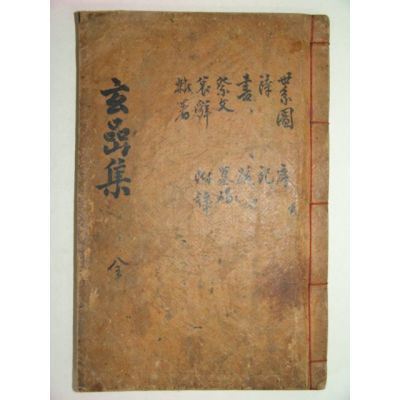 玄嵒集
全
世系圖 序
詩 記
書 跋
祭文 墓碣
哀辭 附錄
雜著